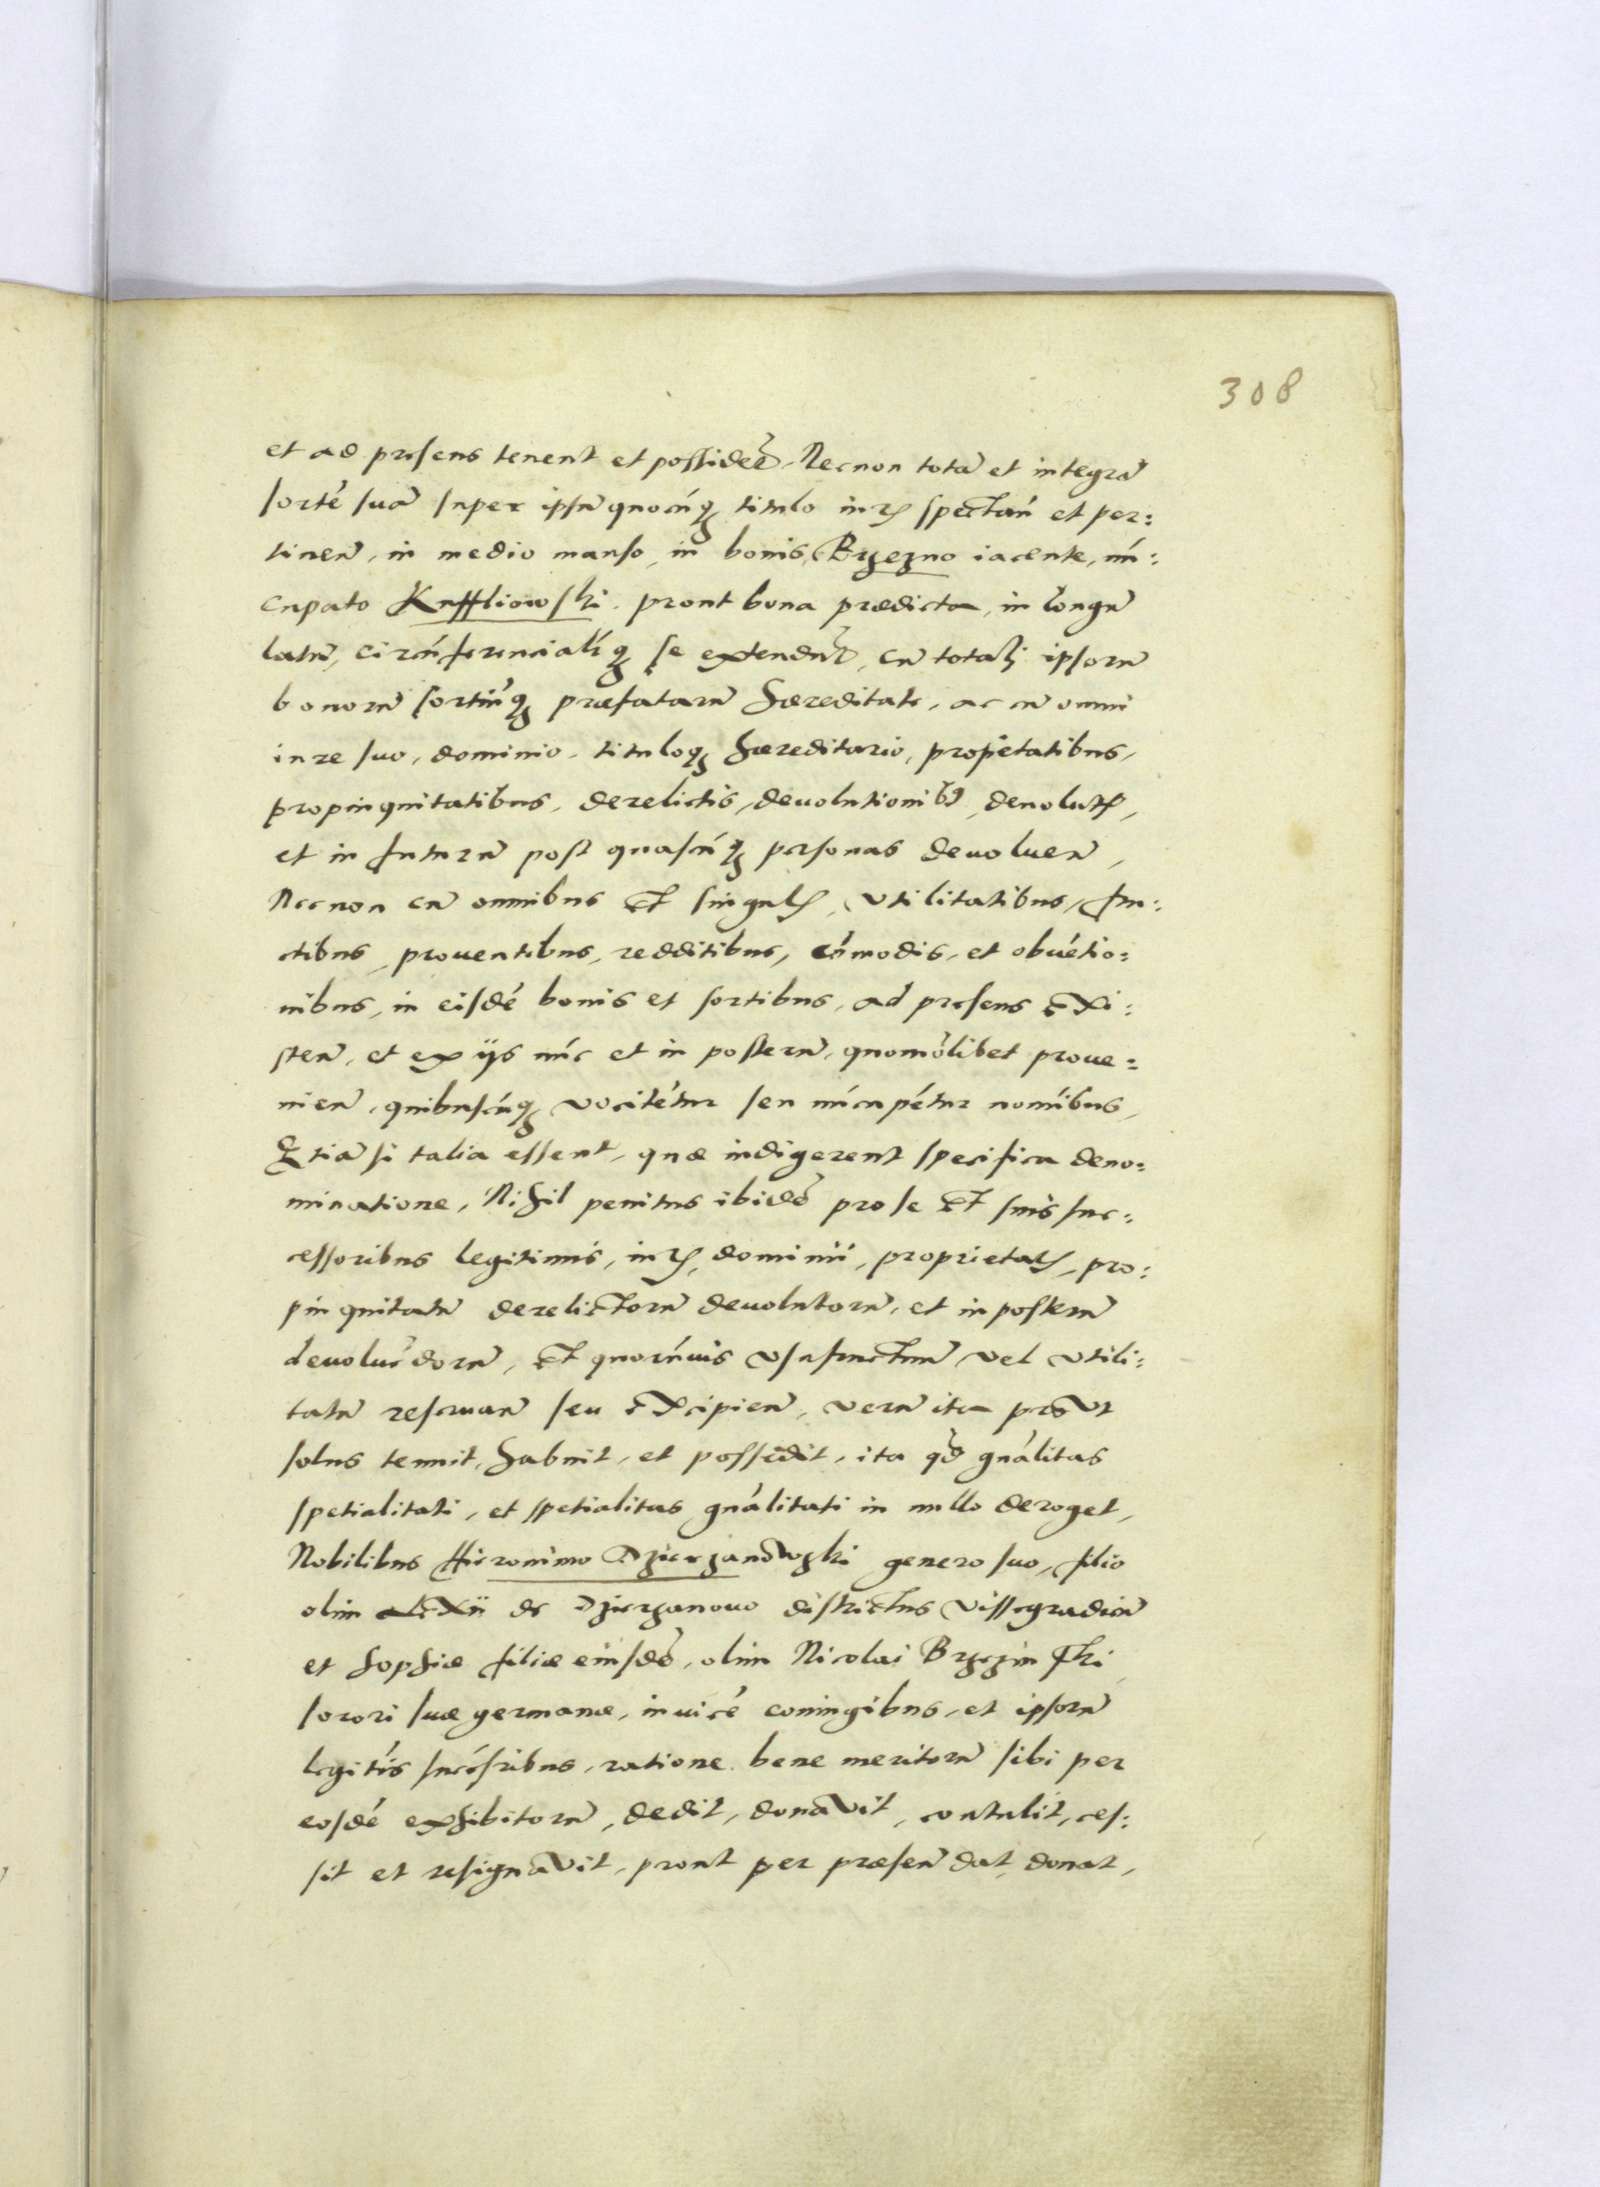 308
et ad presens tenent et possidẽt. Necnon totã et integrã
sortẽ suã super ipsũ quocũq3 titulo iuris spectañ et per:
tineñ, in medio manso, in bonis Brzezno iacente, nũ:
cupato Knffliowski. prout bona prædicta, in longũ
latũ, circũferencialiq3 se extendũt, cũ totali ipsorũ
bonorũ sortiũq3 præfatarũ hæreditate, ac cũ omni
iure suo, dominio, tituloq3 hæreditario, proprietatibus,
propinquitatibus, derelictis, deuolutionib9, deuolutis,
et in futurũ post quascũq3 personas deuolueñ,
Necnon cũ omnibus et singulis, vtilitatibus, fru:
ctibus, prouentibus, redditibus, cõmodis, et obuẽtio:
nibus, in eisdẽ bonis et sortibus, ad presens exi:
steñ, et ex ijs nũc et in posterũ, quomõlibet proue:
nieñ, quibuscũq3 vocitẽtur seu nũcupẽtur nomĩbus,
Etiã si talia essent, quæ indigerent specifica deno:
minatione, Nihil penitus ibidẽ pro se et suis suc:
cessoribus legitimis, iuris, dominii, proprietatis, pro:
pinquitatũ derelictorũ deuolutorũ, et in posterũ
deuoluẽdorũ, et quorũuis vsufructuũ vel vtili:
tatũ reseruañ seu excipieñ, verũ ita prout
solus tenuit, habuit, et possedit, ita qd gnãlitas
spetialitati, et spetialitas gnãlitati in nullo deroget,
Nobilibus Hieronimo Dzierzanowski genero suo, filio
olim Alexii de Dzierzanouo districtus Vissegradieñ
et Sophiæ filiæ eiusdẽ, olim Nicolai Brzezinski
sorori suæ germanæ, inuicẽ coniugibus, et ipsorũ
legitĩs succẽsribus, ratione bene meritorũ sibi per
eosdẽ exhibitorũ, dedit, donavit, contulit, ces:
sit et resignavit, prout per præseñ dat, donat,